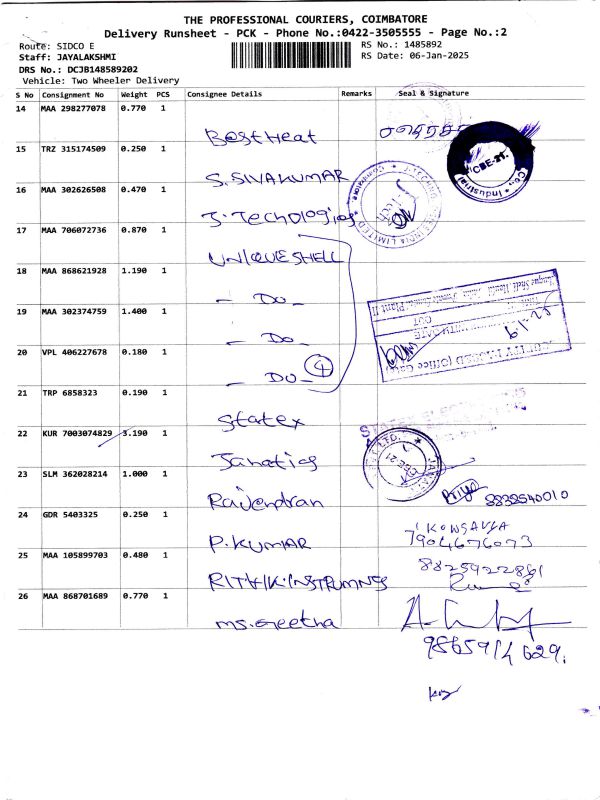 THE PROFESSIONAL COURIERS, COIMBATORE
Delivery Runsheet - PCK - Phone No.:0422-3505555 - Page No.:2
Route: SIDCO E
RS No.: 1485892
Staff: JAYALAKSHMI
RS Date: 06-Jan-2025
DRS No.: DCJB148589202
Vehicle: Two Wheeler Delivery
S No Consignment No Weight PCS Consignee Details Remarks Seal & Signature
14 MAA 298277078 0.770 1
Best Heat
15 TRZ 315174509 0.250 1
S. SIVAKUMAR
CBE-21.
16 MAA 302626508 0.470 1
J. Techologies
17 MAA 706072736 0.870 1
UNIQUE SHELL
18 MAA 868621928 1.190 1
- Do -
19 MAA 302374759 1.400 1
- Do -
20 VPL 406227678 0.180 1
- Do - 4
21 TRP 6858323 0.190 1
Statex
22 KUR 7003074829 3.190 1
Janatics
23 SLM 362028214 1.000 1
Rajendran
Priya
24 GDR 5403325 0.250 1
P. KUMAR
KOWSALYA
7904676073
25 MAA 105899703 0.480 1
RITHIK. INSTRUMNES
26 MAA 868701689 0.770 1
ms. Geetha